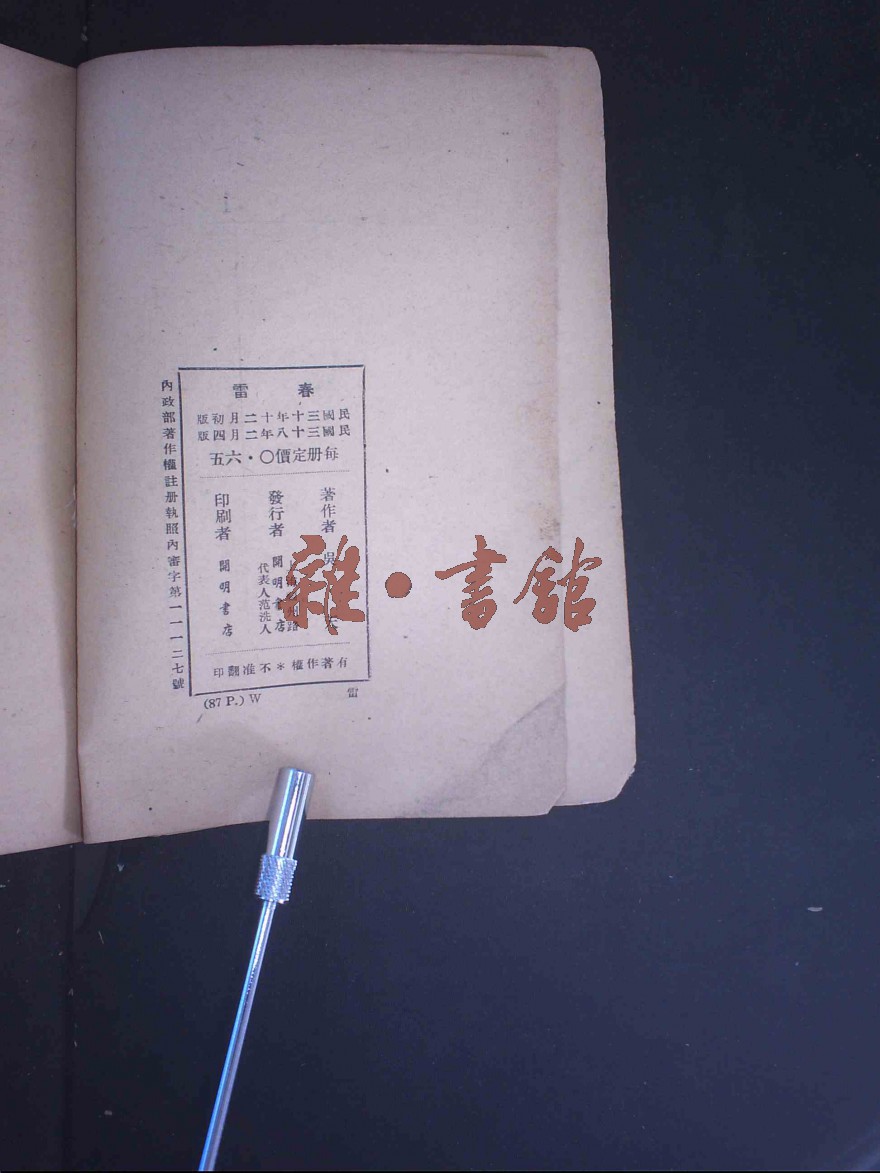 春雷
民國三十年十二月初版
民國三十八年二月四版
每册定價〇・六五
著作者 吳
發行者 開明書店
代表人范洗人
印刷者 開明書店
有著作權＊不准翻印
內政部著作權註册執照內審字第一一一三七號
(87 P.) W
雷
雜・書館